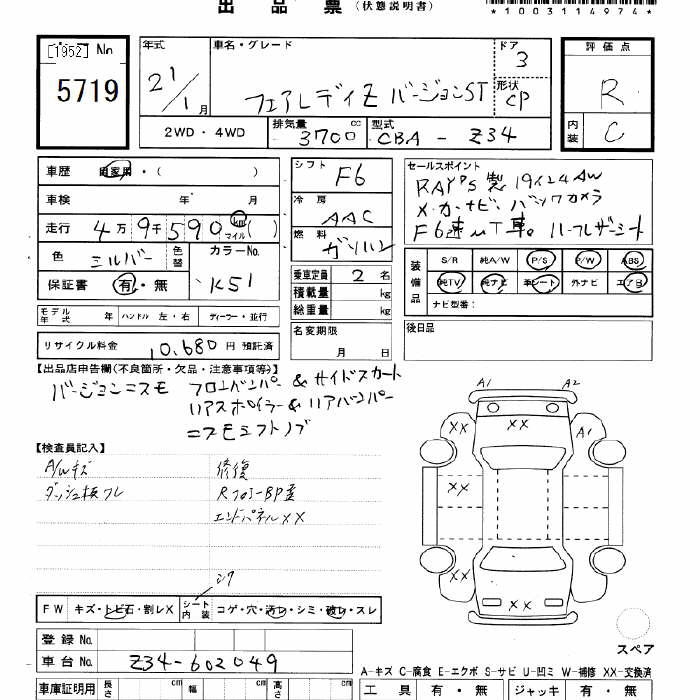 出品票 (状態説明書)
*1003114974*
[1952] No
5719
年式
21/1月
車名・グレード
フェアレディZ バージョンST
ドア
3
形状
CP
2WD・4WD
排気量
3700cc
型式
CBA - Z34
評価点
R
内装
C
車歴 自家用・( )
車検 年 月
走行 4万9千590km マイル( )
色 シルバー 色替
カラーNo.
K51
保証書 有・無
モデル年式 年 ハンドル 左・右 ディーラー・並行
リサイクル料金 10,680円 預託済
シフト
F6
冷房
AAC
燃料
ガソリン
乗車定員 2名
積載量 kg
総重量 kg
名変期限
月 日
セールスポイント
RAY'S製 19インチAW
メーカーナビ バックカメラ
F6速MT車。 ハーフレザーシート
装備品
S/R 純A/W P/S P/W ABS
純TV 純ナビ 革シート 外ナビ エアB
ナビ型番:
後日品
【出品店申告欄(不良箇所・欠品・注意事項等)】
バージョンニスモ フロントバンパー & サイドスカート
リアスポイラー & リアバンパー
ニスモシフトノブ
【検査員記入】
A/Wキズ 修復
ダッシュ板ズレ
エンドパネルXX
シワ
FW キズ・トビ石・割レX シート内装 コゲ・穴・汚レ・シミ・破レ・スレ
登録No.
車台No. Z34-602049
車庫証明用 長さ cm 幅 cm 高さ cm
A1 A2
XX XX A1
XX
XX XX
スペア
A-キズ C-腐食 E-エクボ S-サビ U-凹ミ W-補修 XX-交換済
工具 有・無 ジャッキ 有・無